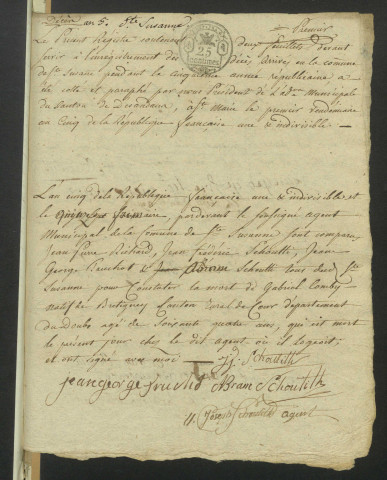 Décès an 5. Ste Suzanne
Premier
Le Présent Registre contenant deux feuillets devant
servir à l'enregistrement des décès, arrivés en la commune
de Ste Suzanne pendant la cinquième année républicaine a
été cotté et paraphé par nous Président de l'adm. Municipale
du Canton de à Ste Marie le premier vendemiaire
an Cinq de la République française une & indivisible
25
L'an cinq de la République française une & indivisible et
le quinze frimaire, pardevant le soussigné agent
Municipal de la Commune de Ste Suzanne sont comparu
Jean Pierre Richard, Jean Frédéric Schoulth, Jean
George & Abram Schoulth tous de Ste
Suzanne pour Constater la mort de Gabriel
natif de Canton de Cour département
du Doubs agé de Soixante quatre ans, qui est mort
le présent jour chez le dit agent où il logeoit;
et ont signé avec moi J. f. Schoulth
jean george Abram Schoulth
agent